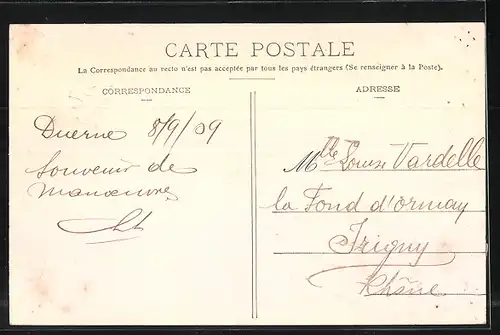 CARTE POSTALE
La Correspondance au recto n'est pas acceptée par tous les pays étrangers (Se renseigner à la Poste).
CORRESPONDANCE
ADRESSE
Duerne 8/9/09
Souvenir de
Manœuvres
Mlle Louise Vardelle
la Fond d'ormay
Irigny
Rhône